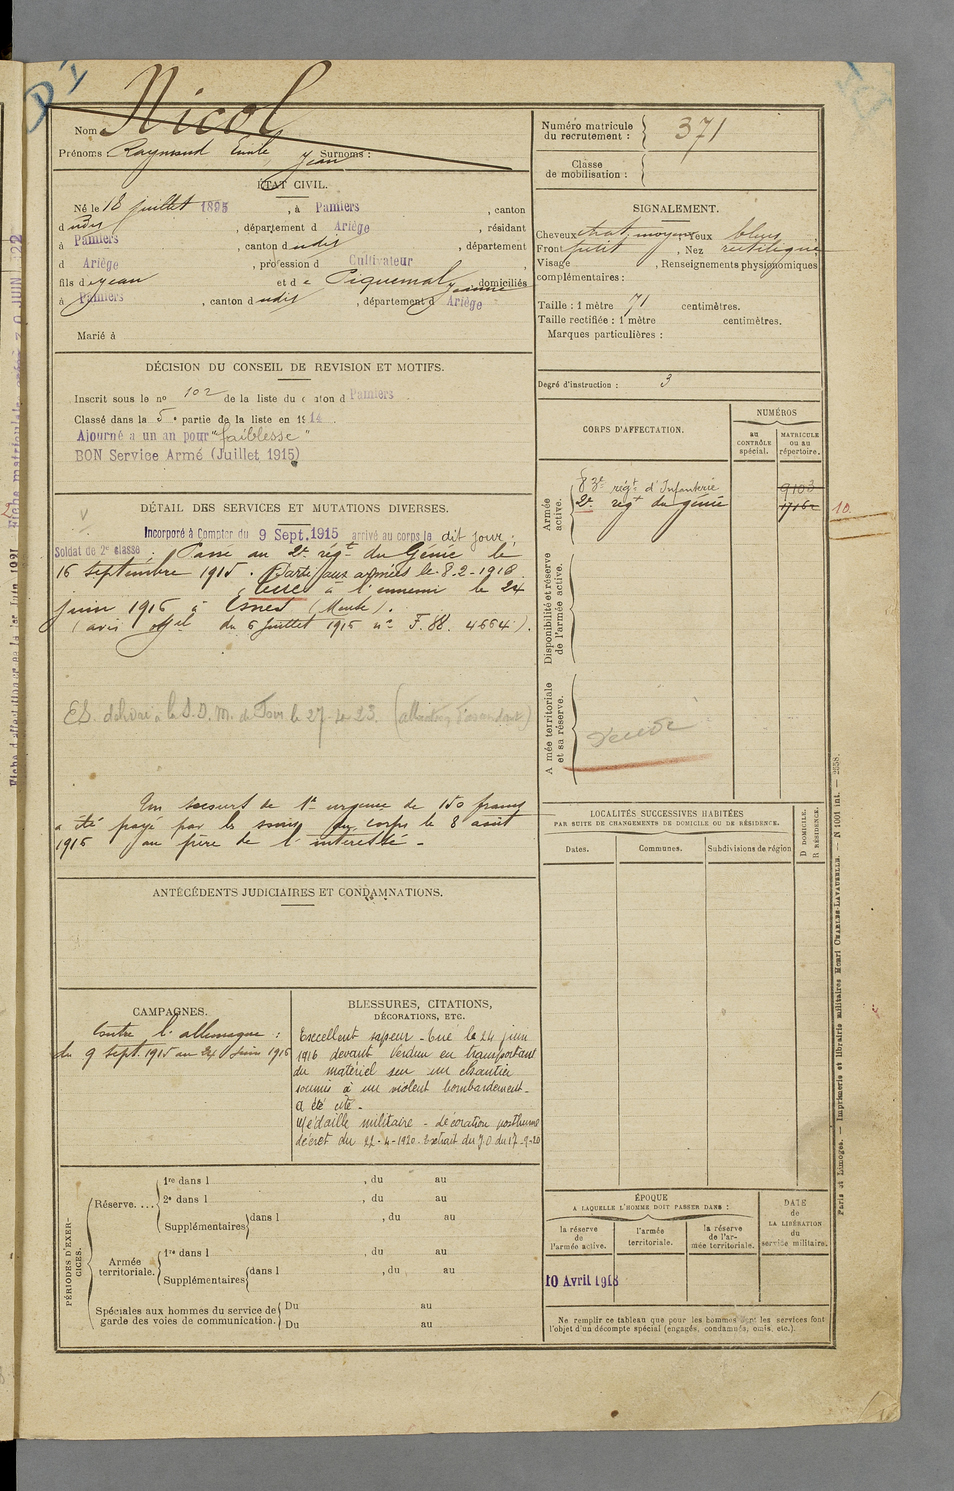 Nicol
Nom
Prénoms Raymond Emile Jean Surnoms :
ÉTAT CIVIL.
Né le 18 juillet 1895, à Pamiers, canton
d udit, département d Ariège, résidant
à Pamiers, canton d udit, département
d Ariège, profession d Cultivateur,
fils de Jean et de Piquemal Jeanne domiciliés
à Pamiers, canton d udit, département d Ariège
Marié à
DÉCISION DU CONSEIL DE REVISION ET MOTIFS.
Inscrit sous le no 102 de la liste du canton d Pamiers.
Classé dans la 5e partie de la liste en 1914.
Ajourné a un an pour "faiblesse"
BON Service Armé (Juillet 1915)
DÉTAIL DES SERVICES ET MUTATIONS DIVERSES.
Incorporé à Compter du 9 Sept. 1915 arrivé au corps le dit jour ;
Soldat de 2e classe. Passé au 2e régt du Génie le
16 septembre 1915. Parti aux armées le 8-2-1916.
Tué à l'ennemi le 24
juin 1916 à Esnes (Meuse).
(avis offel du 6 juillet 1916 no F. 88. 4664).
ES. délivré à le S.D.M. de Foix le 27-4-23.
Un secours de 1re urgence de 150 francs
a été payé par les soins du corps le 8 août
1916 au père de l'intéressé -
ANTÉCÉDENTS JUDICIAIRES ET CONDAMNATIONS.
CAMPAGNES.
Contre l'allemagne :
du 9 sept. 1915 au 24 Juin 1916
BLESSURES, CITATIONS,
DÉCORATIONS, ETC.
Excellent sapeur - Tué le 24 juin
1916 devant Verdun en transportant
du matériel sur un chantier
soumis à un violent bombardement -
a été cité -
Médaille militaire - décoration posthume
décret du 22-4-1920. Extrait du J.O. du 17-9-20
PÉRIODES D'EXERCICES.
Réserve....
1re dans l , du au
2e dans l , du au
Supplémentaires dans l , du au
Armée territoriale.
1re dans l , du au
Supplémentaires dans l , du au
Spéciales aux hommes du service de
garde des voies de communication.
Du au
Du au
Numéro matricule
du recrutement : 371
Classe
de mobilisation :
SIGNALEMENT.
Cheveux chat. moyens, Yeux bleus
Front petit, Nez rectiligne
Visage , Renseignements physionomiques
complémentaires :
Taille : 1 mètre 71 centimètres.
Taille rectifiée : 1 mètre centimètres.
Marques particulières :
Degré d'instruction : 3
CORPS D'AFFECTATION.
NUMÉROS
au CONTRÔLE spécial.
MATRICULE ou au répertoire.
Armée active.
83e régt d'Infanterie 9103
2e régt du génie
10.
Disponibilité et réserve de l'armée active.
Armée territoriale et sa réserve.
Décédé
LOCALITÉS SUCCESSIVES HABITÉES
PAR SUITE DE CHANGEMENTS DE DOMICILE OU DE RÉSIDENCE.
Dates. Communes. Subdivisions de région
D DOMICILE. R RÉSIDENCE.
ÉPOQUE
A LAQUELLE L'HOMME DOIT PASSER DANS :
la réserve de l'armée active.
l'armée territoriale.
la réserve de l'armée territoriale.
DATE de LA LIBÉRATION du service militaire.
10 Avril 1918
Ne remplir ce tableau que pour les hommes dont les services font
l'objet d'un décompte spécial (engagés, condamnés, omis, etc.).
Paris et Limoges. — Imprimerie et librairie militaires Henri CHARLES-LAVAUZELLE. — N 1001 int. — 2558.